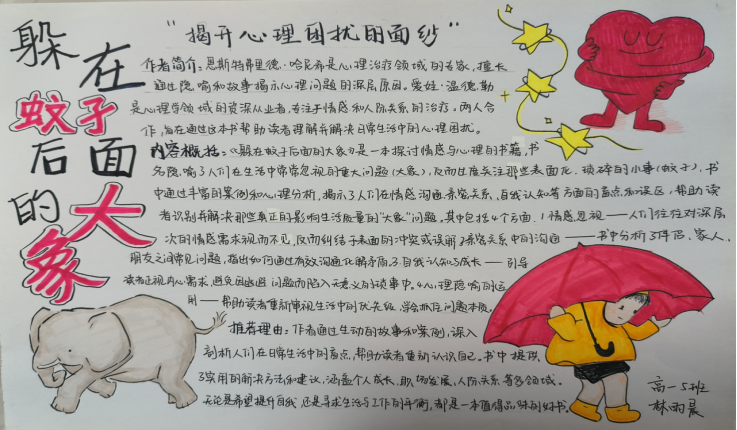 躲在蚊子后面的大象
“揭开心理困扰的面纱”
作者简介：恩斯特弗里德·哈尼希是心理治疗领域的专家，擅长
通过隐喻和故事揭示心理问题的深层原因。爱娃·温德勒
是心理学领域的资深从业者，专注于情感和人际关系的治疗，两人合
作，旨在通过这本书帮助读者理解并解决日常生活中的心理困扰。
内容概括：《躲在蚊子后面的大象》是一本探讨情感与心理的书籍，书
名隐喻了人们在生活中常常忽视的重大问题（大象），反而过度关注那些表面化、琐碎的小事（蚊子），书
中通过丰富的案例和心理分析，揭示了人们在情感沟通亲密关系、自我认知等方面的盲点和误区，帮助读
者识别并解决那些真正的影响生活质量的“大象”问题。其中包括4个方面，1情感忽视——人们往往对深层
次的情感需求视而不见，反而纠结于表面的冲突或误解2亲密关系中的沟通——书中分析了伴侣、家人、
朋友之间常见问题，指出如何通过有效沟通化解矛盾，3.自我认知与成长——引导
读者正视内心需求，避免因逃避问题而陷入无意义的琐事中。4心理隐喻的运
用——帮助读者重新审视生活中的优先级，学会抓住问题本质。
推荐理由：作者通过生动的故事和案例，深入
剖析人们在日常生活中的盲点，帮助读者重新认识自己。书中提供
了实用的解决方法和建议，涵盖个人成长、职场发展、人际关系等多领域。
无论是希望提升自我还是寻求生活与工作的平衡，都是一本值得品味的好书。
高一5班
林雨晨